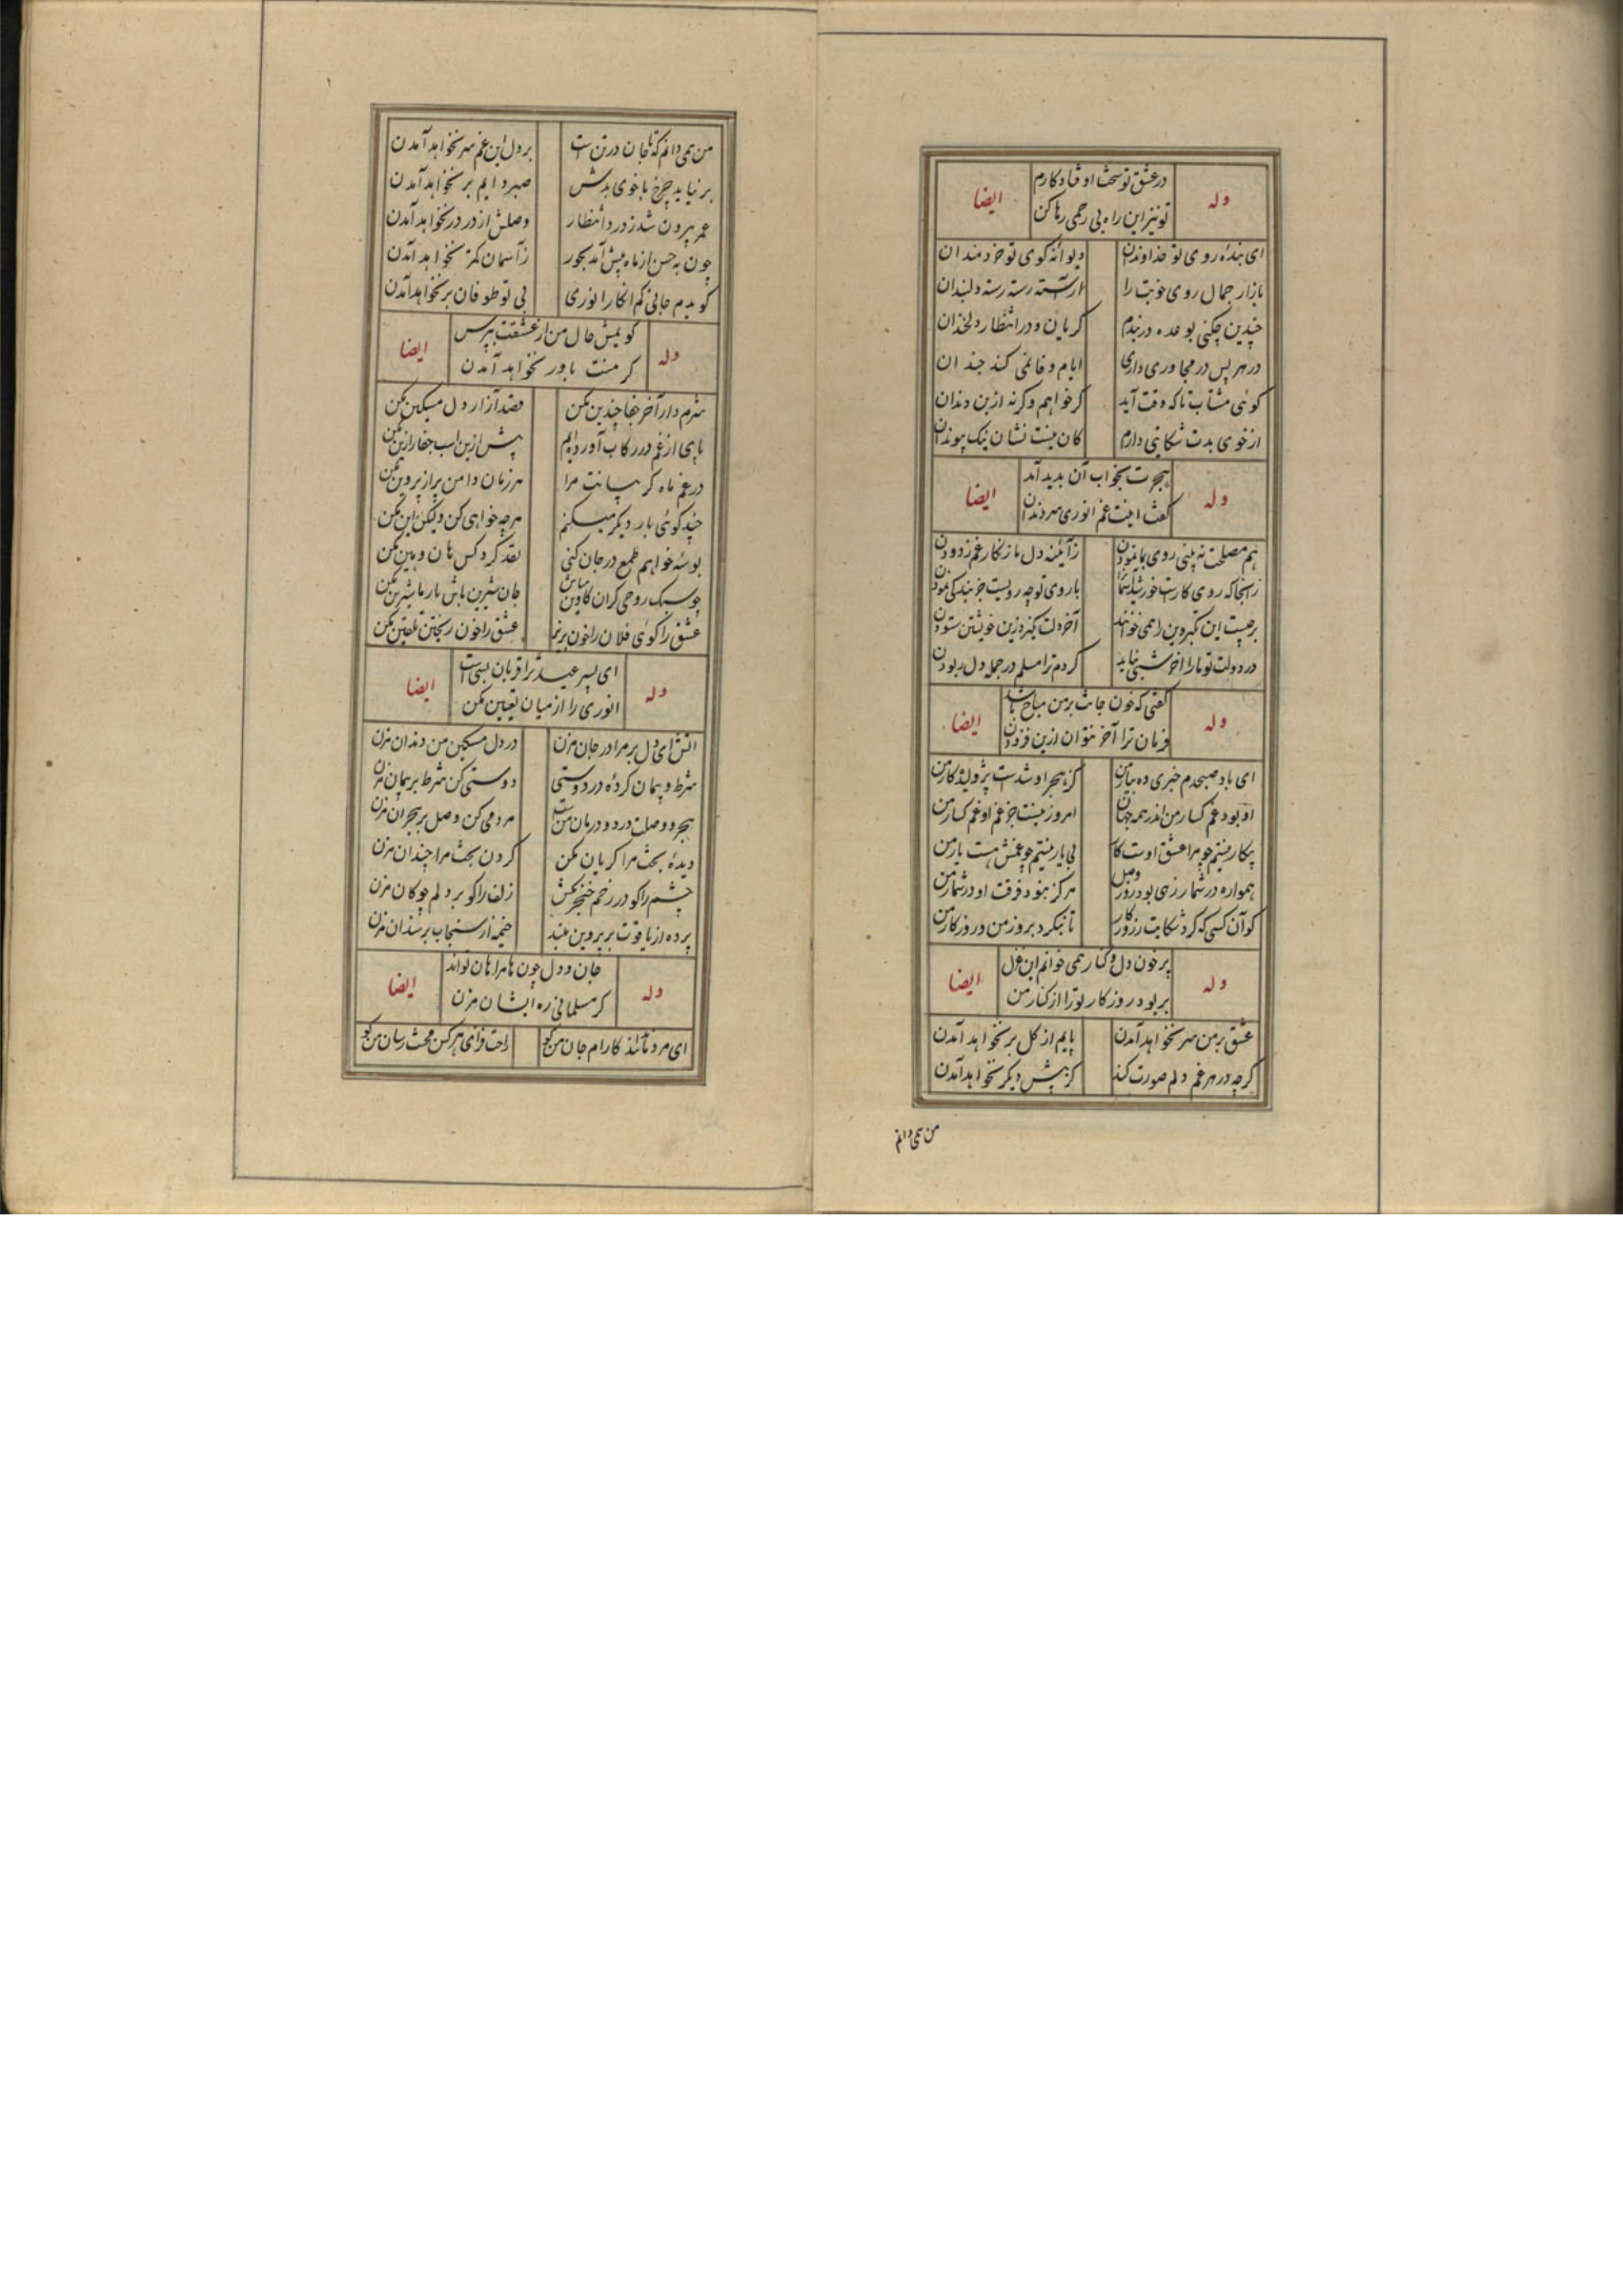 در عشق تو سخت اوفتاد کارم
وله ایضا
تو نیز این راه بی رحمی رها کن
ای بنده روی تو خداوندان دیوانه کوی تو خردمندان
بازار جمال روی خوبت را آراسته رسته رسته دلبندان
چندین چکنی بوعده دربندم کریان و در انتظار دلخندان
در هر پس در مجاوری داری ایام وفا نمی کند چندان
کوئی مشتاب تا که وقت آید کر خواهم وکرنه ازبن دندان
از خوی بدت شکایتی دارم کان نیست نشان نیک پیوندان
هجرت بخواب آن بدید آمد
وله ایضا
کفت اینت غم انوری مرد ندان
هم مصلحت نه بینی روی بما نمودن ز آئینه دل ما زنکار غم زدودن
زانجا که روی کارت خورشید آسمان را با روی تو چه رویست جز بندکی نمودن
بر چیست این تکبر وین را همی خوانند آخر دلت نکیرد زین خویشتن ستودن
در دولت تو ما را آخر شبی نباید کردم ترا مسلم در جمله دل ربودن
کفتی که خون جانت بر من مباح باشد
وله ایضا
فرمان ترا آخر نتوان ازین فزودن
ای باد صبحدم خبری ده ز یار من کز هجر او شدست پژولیده کار من
او بود غمکسار من اندر همه جهان امروز نیست جز غم او غمکسار من
بیکار نیستم چو مرا عشق اوست کار بی یار نیستم چو غمش هست یار من
همواره در شمارزهی بود روز وصل هرکز نبود فرقت او در شمار من
کو آن کسی که کرد شکایت ز روزکار تا بنکرد بروز من و روزکار من
پر خون دل و کنار همی خوانم این غزل
وله ایضا
بربود روزکار تو را از کنار من
عشق بر من سر نخواهد آمدن پایم از کل بر نخواهد آمدن
کرچه در هر غم دلم صورت کند کز پیش دیکر نخواهد آمدن
من همی دانم
من همی دانم که تا جان در تن است بر دل این غم سر نخواهد آمدن
بر نیاید چرخ با خوی بدش صبر دایم بر نخواهد آمدن
عمر بیرون شد ز درد انتظار وصلش از در در نخواهد آمدن
چون به حسن از ماه بیش آمد بجور زآسمان کمتر نخواهد آمدن
کویدم جانی کم انکار انوری بی تو طوفان بر نخواهد آمدن
کویمش حال من از عشقت بپرس
وله ایضا
کر منت باور نخواهد آمدن
شرم دار آخر جفا چندین مکن قصد آزار دل مسکین مکن
پای از غم در رکاب آورده ایم بیش ازین اسب جفا را زین مکن
در غم ماه کریبانت مرا هر زمان دامن پر از پروین مکن
چند کوئی بار دیکر میکنم هر چه خواهی کن ولیکن این مکن
بوسه خواهم طمع در جان کنی نقد کرد کس هان و هین مکن
چو سبک روحی کران کاوین مباش جان شیرین باش یار ما شیرین مکن
عشق را کوئی فلان را خون بریز عشق را خون ریختن تلقین مکن
ای پسر عید ترا قربان بسی است
وله ایضا
انوری را از میان تعیین مکن
آتش ای دل بر مرا در جان مزن در دل مسکین من دندان مزن
شرط و پیمان کرده در دوستی دوستی کن شرط بر پیمان مزن
هجر و وصلت درد و درمان منست مردمی کن وصل بر هجران مزن
دیده بخت مرا کریان مکن کردن بخت مرا چندان مزن
چشم را کو در رخم خنجر مکش زلف را کو بر دلم چوکان مزن
پرده از یاقوت بر پروین مبند خیمه از سنجاب بر سندان مزن
جان و دل چون ما مرا هان تواند
وله ایضا
کر مسلمانی ره ایشان مزن
ای مردمانند کارام جان من کو راحت فزای هر کس محنت رسان من کو